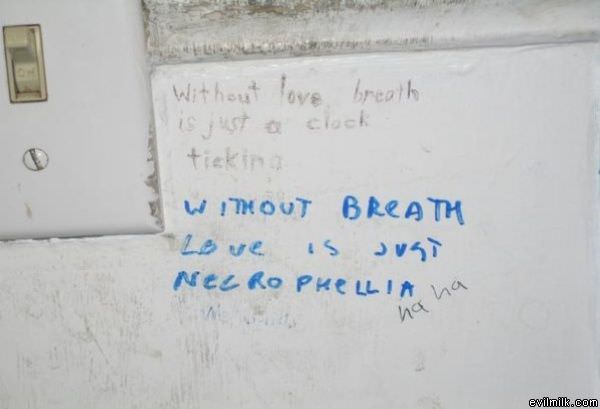 ON
Without love breath
is just a clock
ticking
WITHOUT BREATH
LOVE IS JUST
NECROPHELLIA
ha ha
evilmilk.com